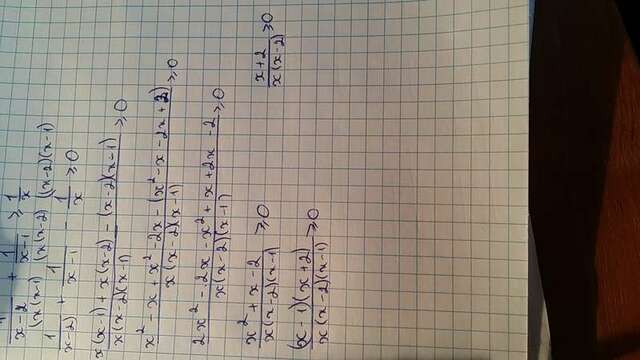 1/(x-2) + 1/(x-1) ≥ 1/x
(x(x-1) (x(x-2) ((x-2)(x-1)
1/(x-2) + 1/(x-1) - 1/x ≥ 0
(x(x-1) + x(x-2) - (x-2)(x-1))/(x(x-2)(x-1)) ≥ 0
(x² - x + x² - 2x - (x² - x - 2x + 2))/(x(x-2)(x-1)) ≥ 0
(2x² - 2x - x² + x + 2x - 2)/(x(x-2)(x-1)) ≥ 0
(x² + x - 2)/(x(x-2)(x-1)) ≥ 0
(x+2)/(x(x-2)) ≥ 0
((x-1)(x+2))/(x(x-2)(x-1)) ≥ 0